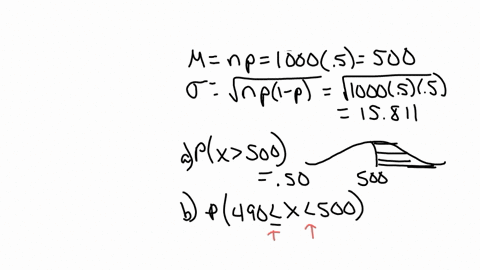 M = np = 1000(.5) = 500
σ = √np(1-p) = √1000(.5)(.5)
= 15.811
a) P(x > 500)
= .50
500
b) P(490 ≤ x < 500)
↑ ↑